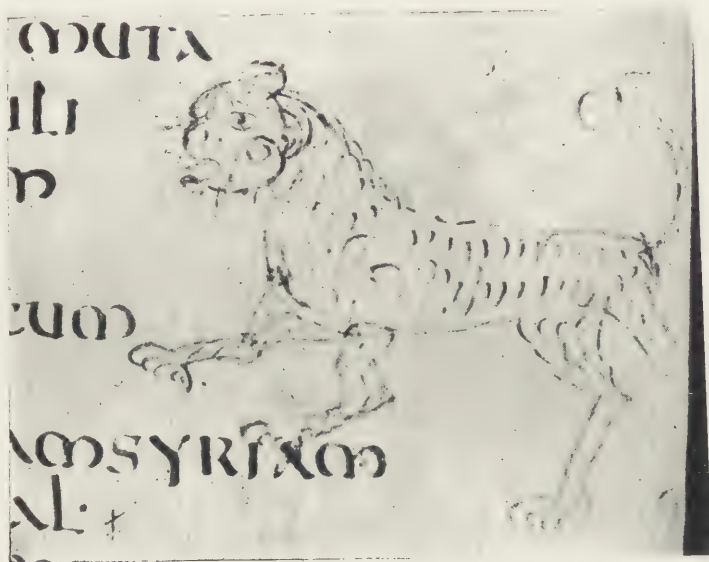 MUTA
ILI
M
CUM
AMSYRIAM
AL·